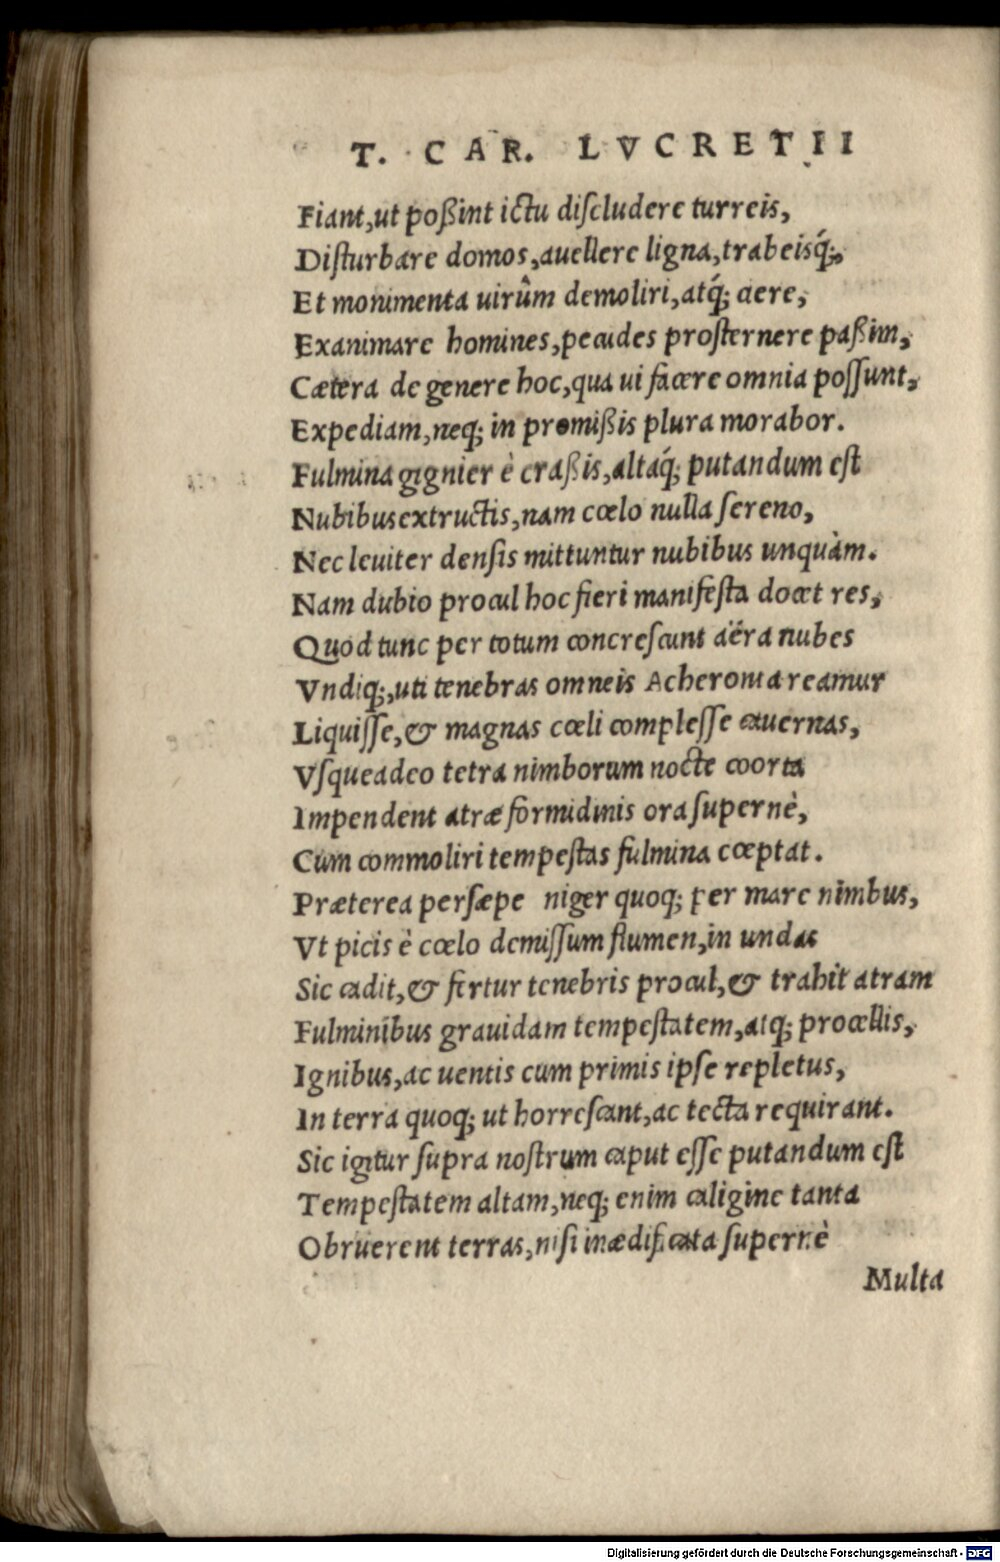 T. CAR. LVCRETII
Fiant, ut poßint ictu diſcludere turreis,
Diſturbare domos, auellere ligna, trabeisq́;,
Et monimenta uirûm demoliri, atq́; aere,
Exanimare homines, pecudes proſternere paßim,
Cætera de genere hoc, qua ui facere omnia poſſunt,
Expediam, neq; in promißis plura morabor.
Fulmina gignier è craßis, altaq́; putandum eſt
Nubibus extructis, nam cœlo nulla ſereno,
Nec leuiter denſis mittuntur nubibus unquàm.
Nam dubio procul hoc fieri manifeſta docet res,
Quod tunc per totum concreſcunt aëra nubes
Vndiq;, uti tenebras omneis Acheronta reamur
Liquiſſe, & magnas cœli compleſſe cauernas,
Vſqueadeo tetra nimborum nocte coorta
Impendent atræ formidinis ora ſupernè,
Cum commoliri tempeſtas fulmina cœptat.
Præterea perſæpe niger quoq; per mare nimbus,
Vt picis è cœlo demiſſum flumen, in undas
Sic cadit, & fertur tenebris procul, & trahit atram
Fulminibus grauidam tempeſtatem, atq; procellis,
Ignibus, ac uentis cum primis ipſe repletus,
In terra quoq; ut horreſcant, ac tecta requirant.
Sic igitur ſupra noſtrum caput eſſe putandum eſt
Tempeſtatem altam, neq; enim caligine tanta
Obruerent terras, niſi inædificata ſupernè
Multa
Digitalisierung gefördert durch die Deutsche Forschungsgemeinschaft - DFG